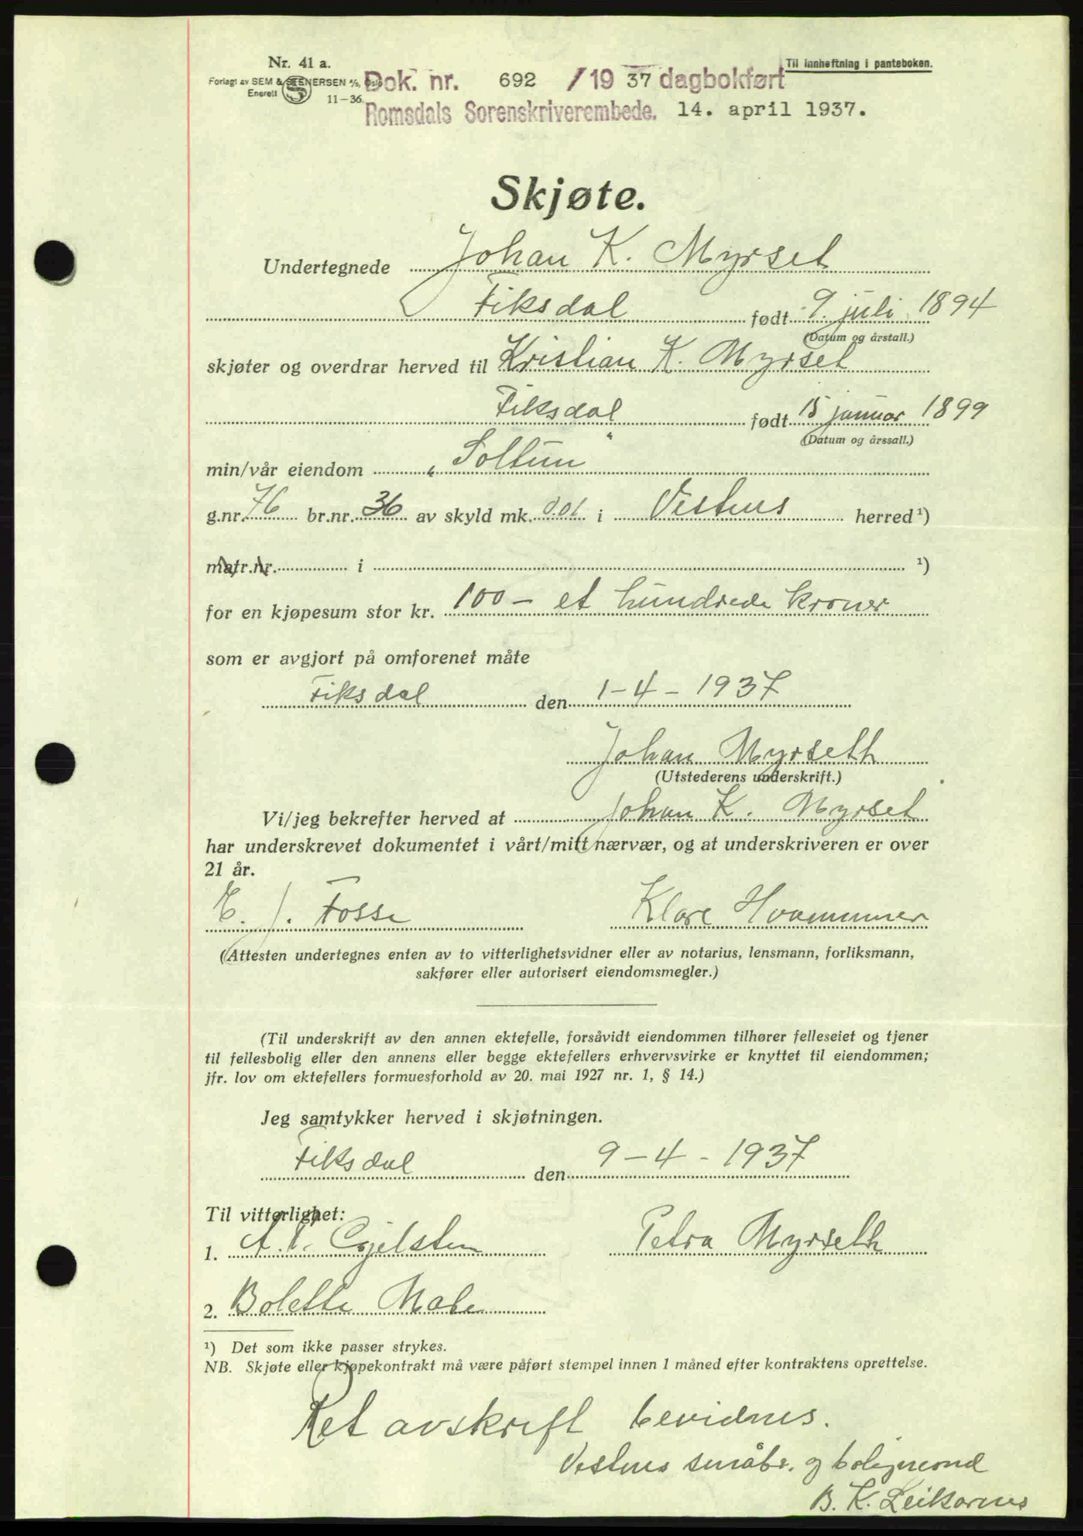 Nr. 41 a.
Forlagt av SEM & STENERSEN A/S, Oslo
Enerett 11-36
Til innheftning i panteboken.
Dok. nr. 692 /19 37 dagbokført
Romsdals Sorenskriverembede. 14. april 1937.
Skjøte.
Undertegnede Johan K. Myrset
Fiksdal født 9. juli 1894
(Datum og årstall.)
skjøter og overdrar herved til Kristian K. Myrset
Fiksdal født 15 januar 1899
(Datum og årssall.)
min/vår eiendom „Soltun"
g.nr. 76 br.nr. 36 av skyld mk. 0.01 i Vestnes herred ¹)
matr.nr. i ¹)
for en kjøpesum stor kr. 100 - et hundrede kroner
som er avgjort på omforenet måte
Fiksdal den 1-4-1937
Johan Myrseth
(Utstederens underskrift.)
Vi/jeg bekrefter herved at Johan K. Myrset
har underskrevet dokumentet i vårt/mitt nærvær, og at underskriveren er over
21 år.
E. J. Fosse Klare Hvammner
(Attesten undertegnes enten av to vitterlighetsvidner eller av notarius, lensmann, forliksmann,
sakfører eller autorisert eiendomsmegler.)
(Til underskrift av den annen ektefelle, forsåvidt eiendommen tilhører felleseiet og tjener
til fellesbolig eller den annens eller begge ektefellers erhvervsvirke er knyttet til eiendommen;
jfr. lov om ektefellers formuesforhold av 20. mai 1927 nr. 1, § 14.)
Jeg samtykker herved i skjøtningen.
Fiksdal den 9-4-1937
Til vitterlighet:
1. Gjelsten Petra Myrseth
2. Bolette
¹) Det som ikke passer strykes.
NB. Skjøte eller kjøpekontrakt må være påført stempel innen 1 måned efter kontraktens oprettelse.
Ret avskrift bevidnes.
Vestnes småbr. og bolignevnd
B. K. Leikarnes